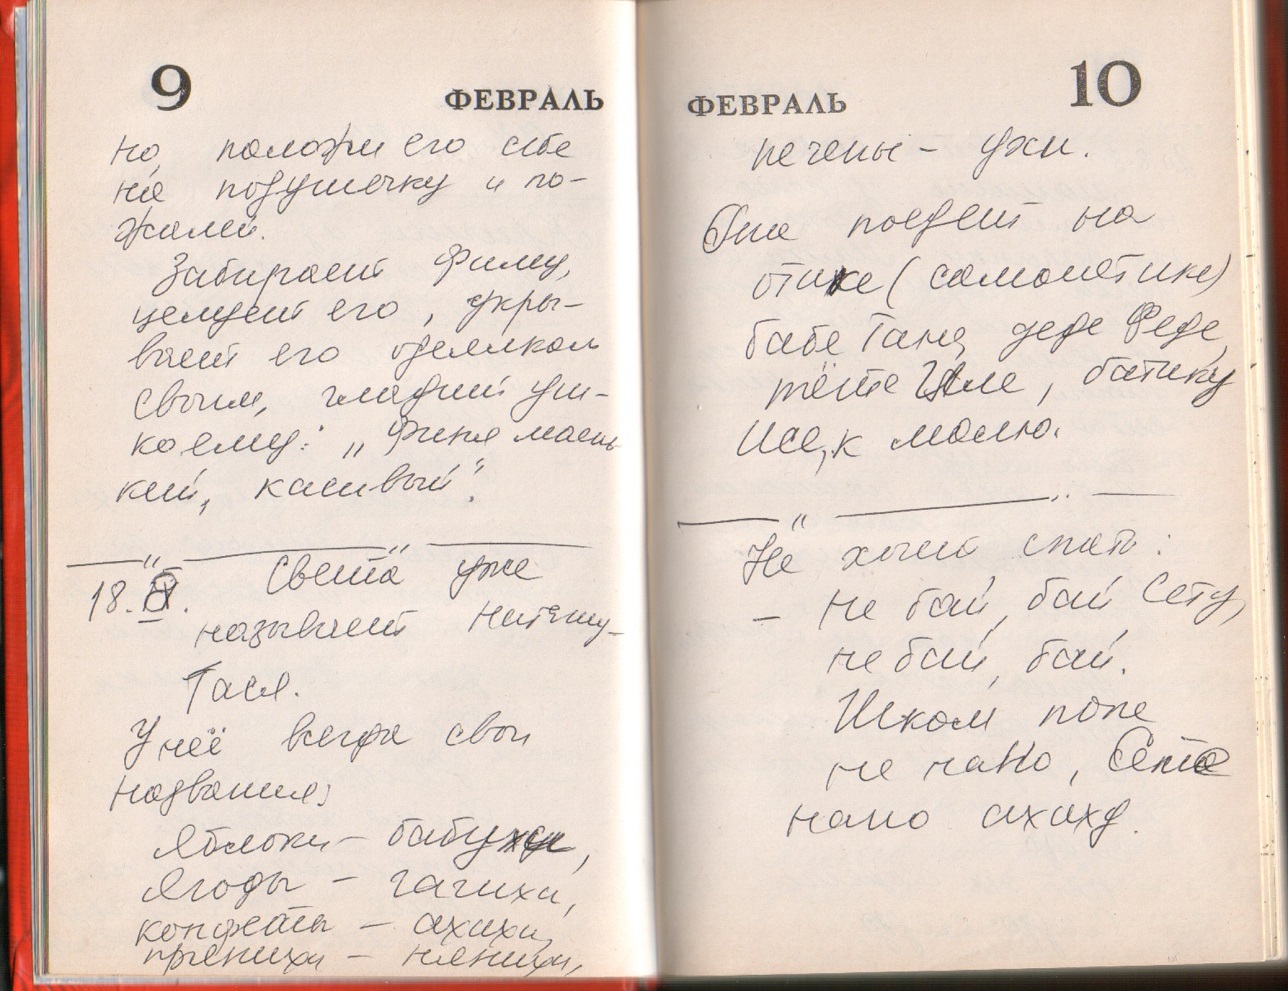 9
ФЕВРАЛЬ
но, положи его себе
на подушечку и по-
жалей.
Забирает Фиму,
целует его, укры-
вает его одеялком
своим, гладит уш-
ко ему: „Финя маень
кий, касивый".
18. II. Света уже
называет Наташу-
Тася.
У неё всегда свои
названия:
Яблоки – бабужи,
Ягоды – гагихи,
конфеты – ахихи,
пряники – няники,
ФЕВРАЛЬ
10
печены – ухи.
Она поедет на
отике (самолётике)
бабе Таня, деде Феде,
тёте Гале, батику
Исе, к малю.
Не хочет спать:
– не бай, бай Сету,
не бай, бай.
Шком попе
не нано, Сета
нано ахиху.